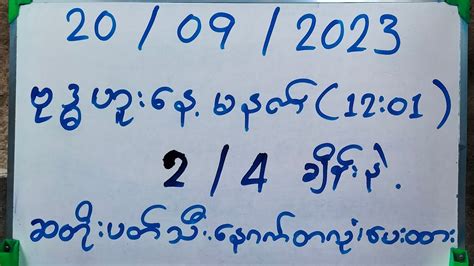 20 / 09 / 2023
ဗုဒ္ဓဟူးနေ့ မနက် (12:01)
2 / 4 ချိန်းနဲ့.
ဆတိုးပတ်သီးနောက်တလုံးပေးထား